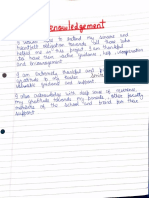 Acknowledgement
I would like to extend my sincere and
heartfelt obligation towards all those who
helped me in this project. I am thankful
to have their guidance, help, cooperation
and encouragement
I am extremely thankful and
gratitude to my
valuable guidance and support.
I also acknowledge with deep sense of reverence,
my gratitude towards my parents, other faculty
members of the school and friend for their
support